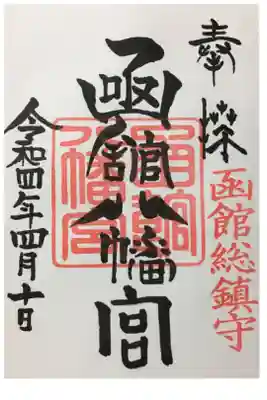 奉拝
函館総鎮守
函館八幡宮
令和四年四月十日